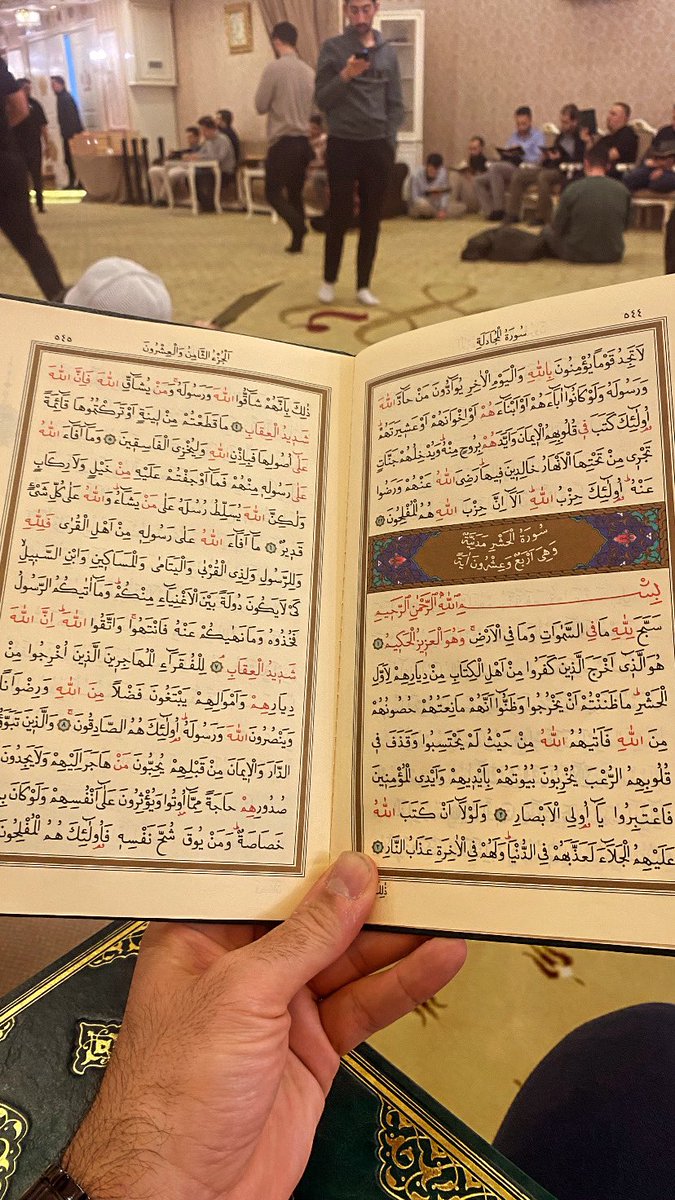 ٥٤٤
سُورَةُ الْمُجَادَلَةِ
لَا تَجِدُ قَوْمًا يُؤْمِنُونَ بِاللّٰهِ وَالْيَوْمِ الْاٰخِرِ يُوَٓادُّونَ مَنْ حَٓادَّ اللّٰهَ
وَرَسُولَهُ وَلَوْ كَانُٓوا اٰبَٓاءَهُمْ اَوْ اَبْنَٓاءَهُمْ اَوْ اِخْوَانَهُمْ اَوْ عَشٖيرَتَهُمْ
اُو۬لٰٓئِكَ كَتَبَ فٖي قُلُوبِهِمُ الْاٖيمَانَ وَاَيَّدَهُمْ بِرُوحٍ مِنْهُ وَيُدْخِلُهُمْ جَنَّاتٍ
تَجْرٖي مِنْ تَحْتِهَا الْاَنْهَارُ خَالِدٖينَ فٖيهَا رَضِيَ اللّٰهُ عَنْهُمْ وَرَضُوا
عَنْهُ اُو۬لٰٓئِكَ حِزْبُ اللّٰهِ اَلَٓا اِنَّ حِزْبَ اللّٰهِ هُمُ الْمُفْلِحُونَ ﴿٢٢﴾
سُورَةُ الْحَشْرِ مَدَنِيَّةٌ
وَهِيَ اَرْبَعٌ وَعِشْرُونَ اٰيَةً
بِسْمِ اللّٰهِ الرَّحْمٰنِ الرَّحٖيمِ
سَبَّحَ لِلّٰهِ مَا فِي السَّمٰوَاتِ وَمَا فِي الْاَرْضِ وَهُوَ الْعَزٖيزُ الْحَكٖيمُ ﴿١﴾
هُوَ الَّذٖٓي اَخْرَجَ الَّذٖينَ كَفَرُوا مِنْ اَهْلِ الْكِتَابِ مِنْ دِيَارِهِمْ لِاَوَّلِ
الْحَشْرِ مَا ظَنَنْتُمْ اَنْ يَخْرُجُوا وَظَنُّٓوا اَنَّهُمْ مَانِعَتُهُمْ حُصُونُهُمْ
مِنَ اللّٰهِ فَاَتٰيهُمُ اللّٰهُ مِنْ حَيْثُ لَمْ يَحْتَسِبُوا وَقَذَفَ فٖي
قُلُوبِهِمُ الرُّعْبَ يُخْرِبُونَ بُيُوتَهُمْ بِاَيْدٖيهِمْ وَاَيْدِي الْمُؤْمِنٖينَ
فَاعْتَبِرُوا يَٓا اُو۬لِي الْاَبْصَارِ ﴿٢﴾ وَلَوْلَٓا اَنْ كَتَبَ اللّٰهُ
عَلَيْهِمُ الْجَلَٓاءَ لَعَذَّبَهُمْ فِي الدُّنْيَا وَلَهُمْ فِي الْاٰخِرَةِ عَذَابُ النَّارِ ﴿٣﴾
ذٰلِكَ
٥٤٥
اَلْجُزْءُ الثَّامِنُ وَالْعِشْرُونَ
ذٰلِكَ بِاَنَّهُمْ شَٓاقُّوا اللّٰهَ وَرَسُولَهُ وَمَنْ يُشَٓاقِّ اللّٰهَ فَاِنَّ اللّٰهَ
شَدٖيدُ الْعِقَابِ ﴿٤﴾ مَا قَطَعْتُمْ مِنْ لٖينَةٍ اَوْ تَرَكْتُمُوهَا قَٓائِمَةً
عَلٰٓى اُصُولِهَا فَبِاِذْنِ اللّٰهِ وَلِيُخْزِيَ الْفَاسِقٖينَ ﴿٥﴾ وَمَٓا اَفَٓاءَ اللّٰهُ
عَلٰى رَسُولِهٖ مِنْهُمْ فَمَٓا اَوْجَفْتُمْ عَلَيْهِ مِنْ خَيْلٍ وَلَا رِكَابٍ
وَلٰكِنَّ اللّٰهَ يُسَلِّطُ رُسُلَهُ عَلٰى مَنْ يَشَٓاءُ وَاللّٰهُ عَلٰى كُلِّ شَيْءٍ
قَدٖيرٌ ﴿٦﴾ مَٓا اَفَٓاءَ اللّٰهُ عَلٰى رَسُولِهٖ مِنْ اَهْلِ الْقُرٰى فَلِلّٰهِ
وَلِلرَّسُولِ وَلِذِي الْقُرْبٰى وَالْيَتَامٰى وَالْمَسَاكٖينِ وَابْنِ السَّبٖيلِ
كَيْ لَا يَكُونَ دُولَةً بَيْنَ الْاَغْنِيَٓاءِ مِنْكُمْ وَمَٓا اٰتٰيكُمُ الرَّسُولُ
فَخُذُوهُ وَمَا نَهٰيكُمْ عَنْهُ فَانْتَهُوا وَاتَّقُوا اللّٰهَ اِنَّ اللّٰهَ
شَدٖيدُ الْعِقَابِ ﴿٧﴾ لِلْفُقَرَٓاءِ الْمُهَاجِرٖينَ الَّذٖينَ اُخْرِجُوا مِنْ
دِيَارِهِمْ وَاَمْوَالِهِمْ يَبْتَغُونَ فَضْلًا مِنَ اللّٰهِ وَرِضْوَانًا
وَيَنْصُرُونَ اللّٰهَ وَرَسُولَهُ اُو۬لٰٓئِكَ هُمُ الصَّادِقُونَ ﴿٨﴾ وَالَّذٖينَ تَبَوَّؤُ
الدَّارَ وَالْاٖيمَانَ مِنْ قَبْلِهِمْ يُحِبُّونَ مَنْ هَاجَرَ اِلَيْهِمْ وَلَا يَجِدُونَ
صُدُورِهِمْ حَاجَةً مِمَّٓا اُو۫تُوا وَيُؤْثِرُونَ عَلٰٓى اَنْفُسِهِمْ وَلَوْ كَانَ
خَصَاصَةٌ وَمَنْ يُوقَ شُحَّ نَفْسِهٖ فَاُو۬لٰٓئِكَ هُمُ الْمُفْلِحُونَ